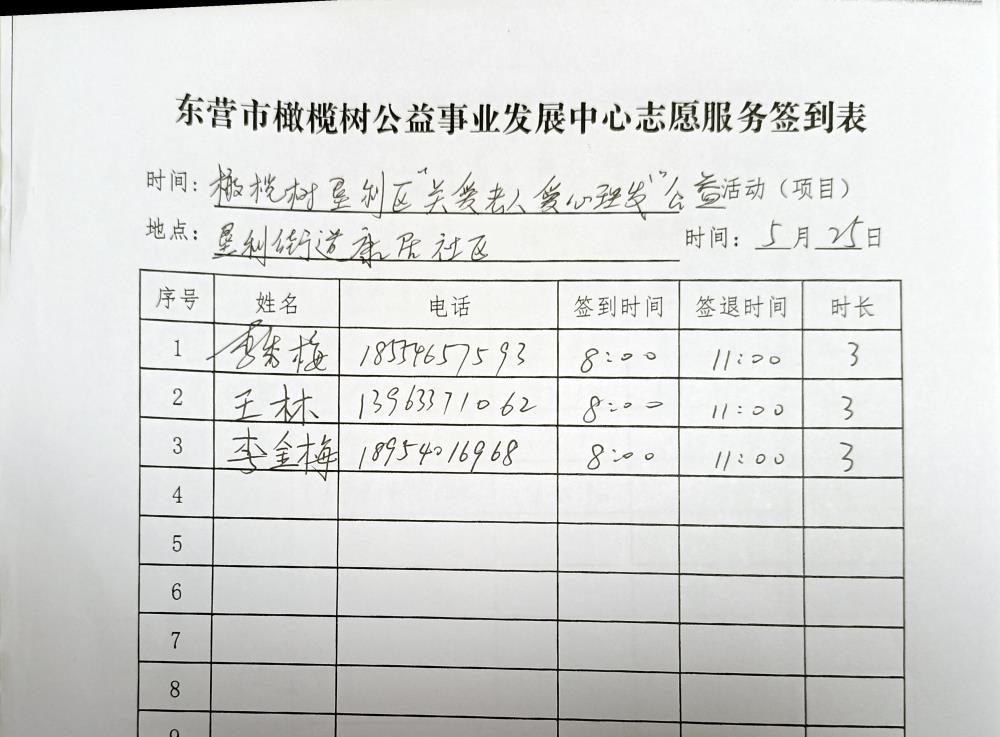 东营市橄榄树公益事业发展中心志愿服务签到表
时间：橄榄树垦利区“关爱老人爱心理发”公益活动（项目）
地点：垦利街道康居社区 时间：5月25日
序号 姓名 电话 签到时间 签退时间 时长
1 梅 18554657593 8:00 11:00 3
2 王林 13963371062 8:00 11:00 3
3 李金梅 18954016968 8:00 11:00 3
4
5
6
7
8